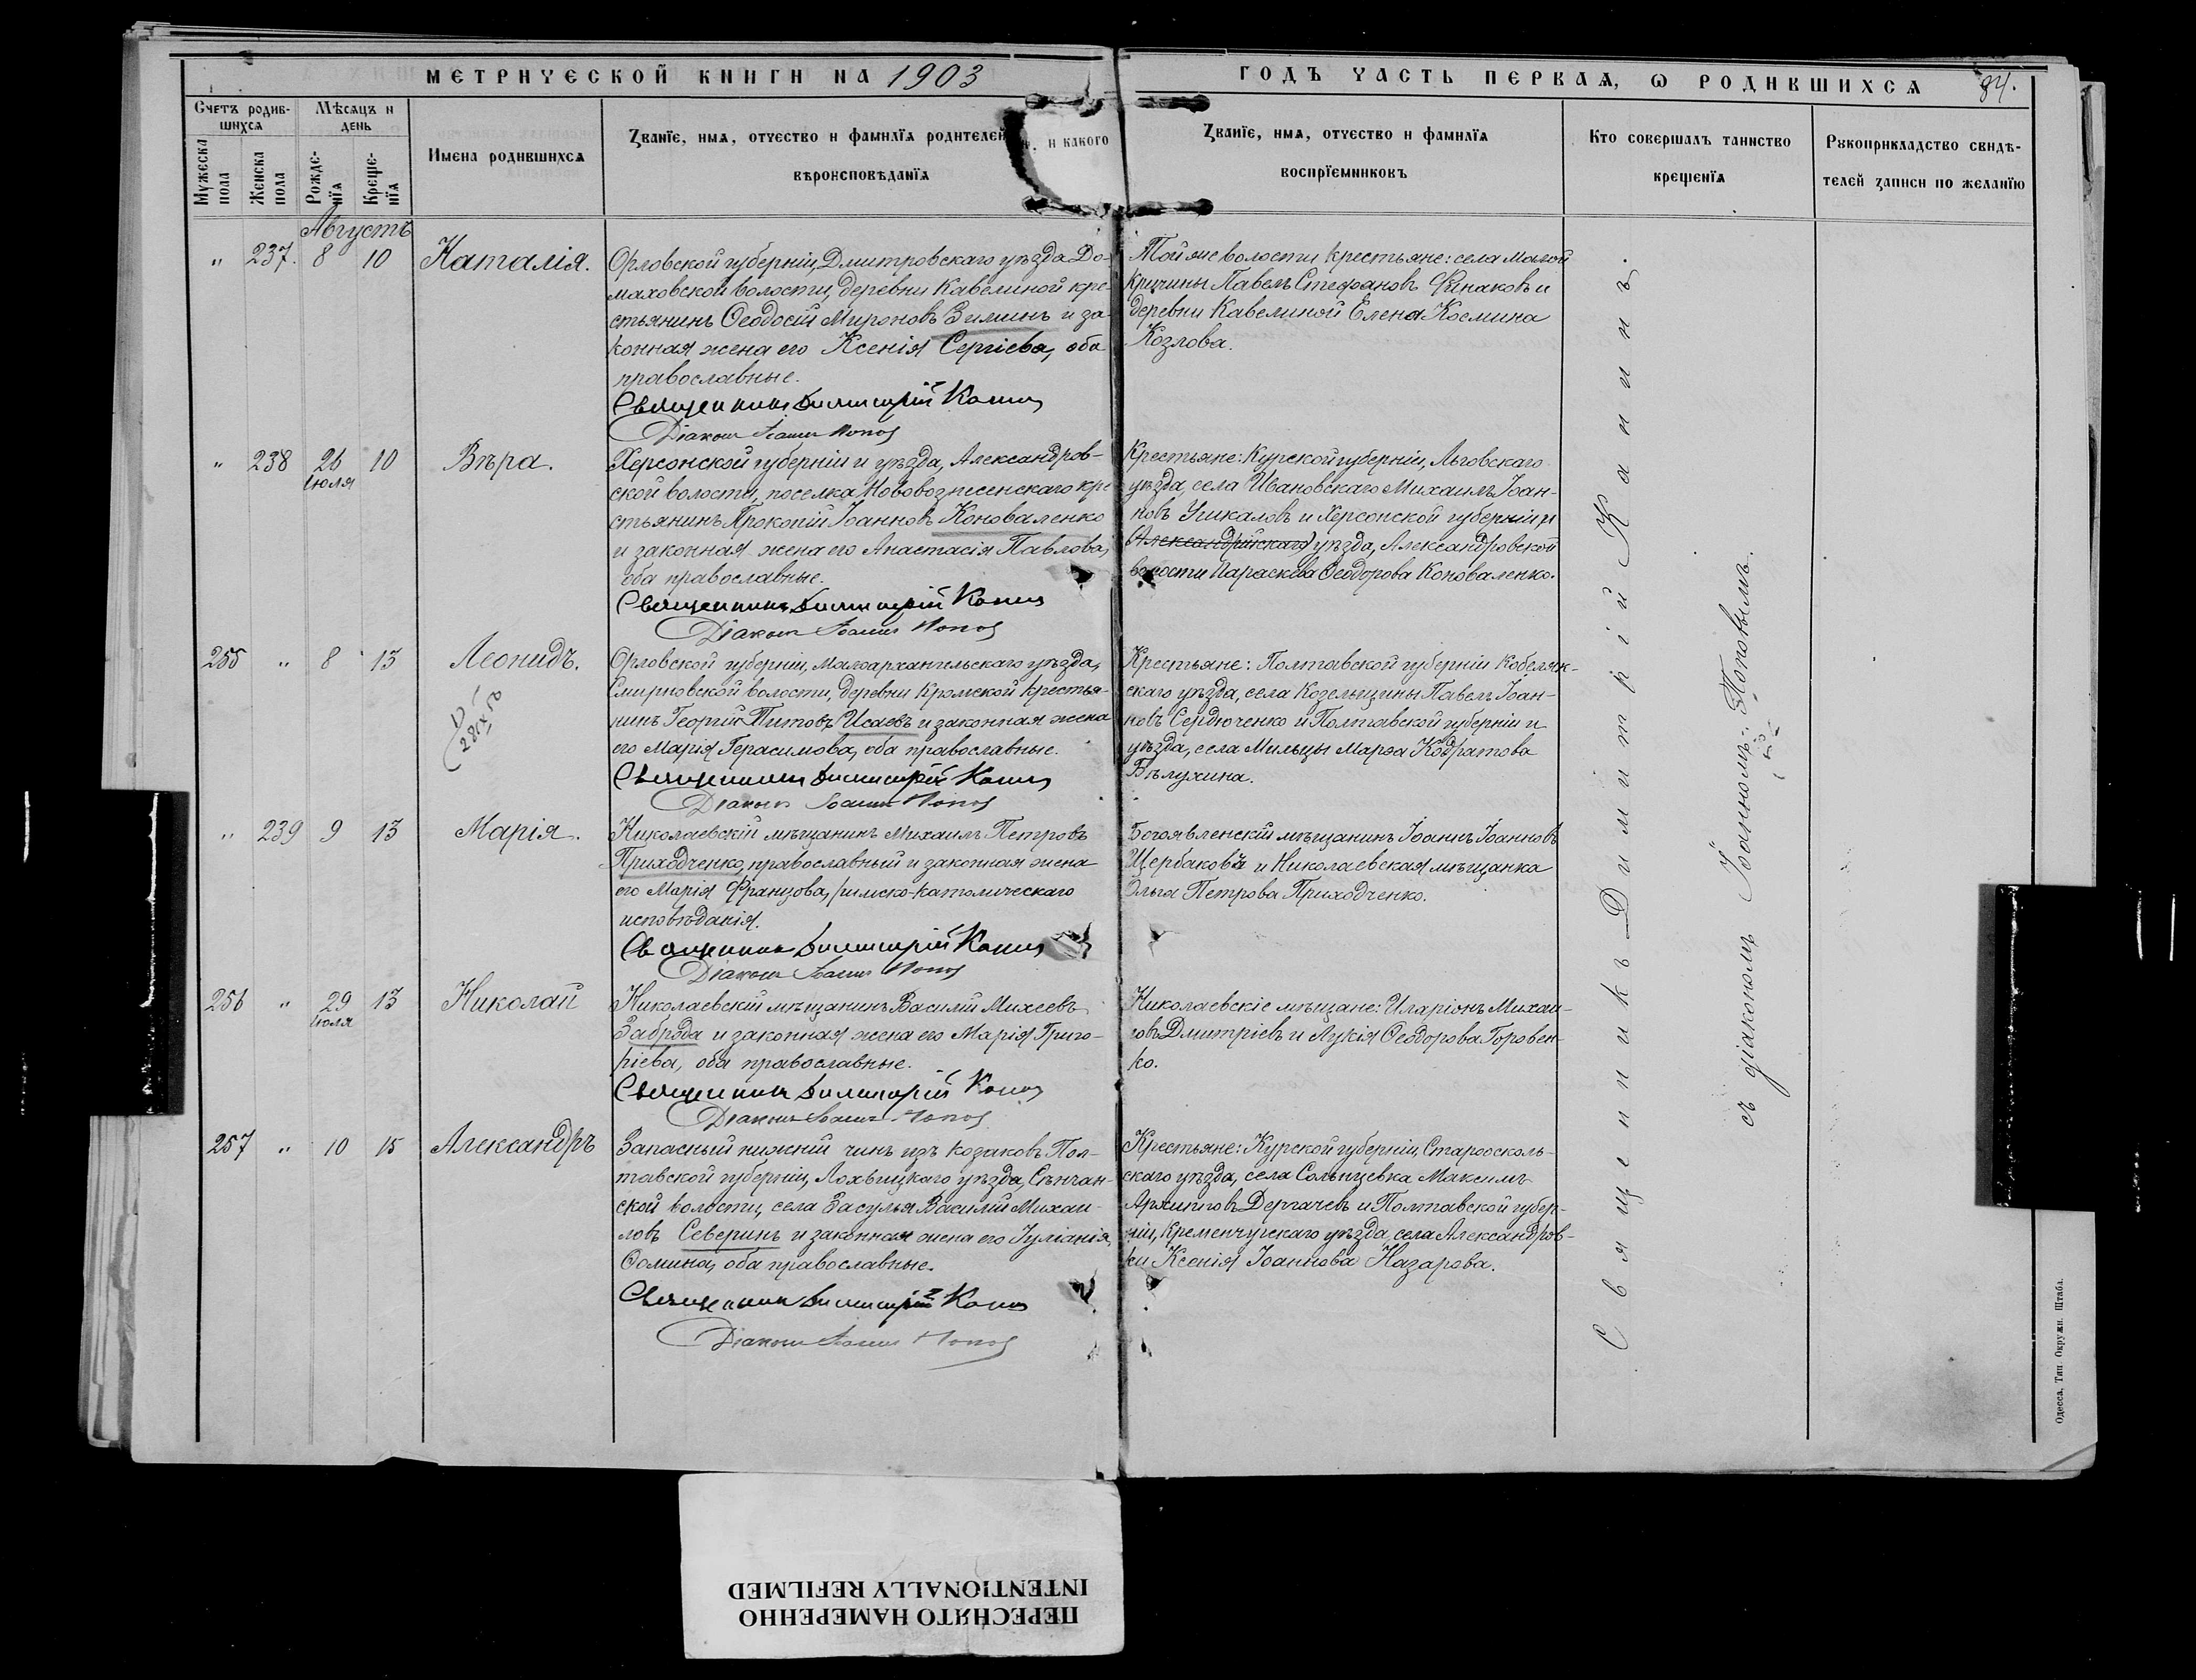 МЕТРИЧЕСКОЙ КНИГИ НА 1903
ГОДЪ ЧАСТЬ ПЕРВАЯ, Ѡ РОДИВШИХСЯ
84.
Счетъ родив-
шихся
Мѣсяцъ и
день
Мужеска
пола
Женска
пола
Рожде-
нія
Креще-
нія
Имена родившихся
Званіе, имя, отчество и фамилія родителей
и какого
вѣроисповѣданія
Званіе, имя, отчество и фамилія
воспріемниковъ
Кто совершалъ таинство
крещенія
Рукоприкладство свидѣ-
телей записи по желанію
Августъ
" 237. 8 10 Наталія.
Орловской губерніи, Дмитровскаго уѣзда До-
маховской волости, деревни Кавелиной кре-
стьянинъ Ѳеодосій Мироновъ Зиминъ и за-
конная жена его Ксенія Сергіева, оба
православные.
Священникъ Димитрій Канинъ
Діаконъ Іоаннъ Поповъ
Той же волости крестьяне: села Малой
Кричины Павелъ Стефановъ Финаковъ и
деревни Кавелиной Елена Космина
Козлова.
" 238 26 10 Вѣра.
Іюля
Херсонской губерніи и уѣзда, Александров-
ской волости, поселка Нововознесенскаго кре-
стьянинъ Прокопій Іоанновъ Коноваленко
и законная жена его Анастасія Павлова,
оба православные.
Священникъ Димитрій Канинъ
Діаконъ Іоаннъ Поповъ
Крестьяне: Курской губерніи, Льговскаго
уѣзда, села Ивановскаго Михаилъ Іоан-
новъ Учкаловъ и Херсонской губерніи и
Александрійскаго уѣзда, Александровской
волости Параскева Ѳеодорова Коноваленко.
255 " 8 13 Леонидъ.
Орловской губерніи, Малоархангельскаго уѣзда,
Смирновской волости, деревни Кромской крестья-
нинъ Георгій Титовъ Исаевъ и законная жена
его Марія Герасимова, оба православные.
Священникъ Димитрій Канинъ
Діаконъ Іоаннъ Поповъ
Крестьяне: Полтавской губерніи Кобеляк-
скаго уѣзда, села Козельщины Павелъ Іоан-
новъ Сердюченко и Полтавской губерніи и
уѣзда, села Мильцы Марѳа Кодратова
Бѣлухина.
" 239 9 13 Марія.
Николаевскій мѣщанинъ Михаилъ Петровъ
Приходченко, православный и законная жена
его Марія Францова, римско-католическаго
исповѣданія.
Священникъ Димитрій Канинъ
Діаконъ Іоаннъ Поповъ
Богоявленскій мѣщанинъ Іоаннъ Іоанновъ
Щербаковъ и Николаевская мѣщанка
Ольга Петрова Приходченко.
256 " 29 13 Николай
Іюля
Николаевскій мѣщанинъ Василій Михеевъ
Заброда и законная жена его Марія Григо-
ріева, оба православные.
Священникъ Димитрій Канинъ
Діаконъ Іоаннъ Поповъ
Николаевскіе мѣщане: Иларіонъ Михаи-
ловъ Дмитріевъ и Лукія Ѳеодорова Горовен-
ко.
257 " 10 15 Александръ
Запасный нижній чинъ изъ козаковъ Пол-
тавской губерніи, Лохвицкаго уѣзда, Сѣнчан-
ской волости, села Засулья Василій Михаи-
ловъ Северинъ и законная жена его Іуліанія
Ѳомина, оба православные.
Священникъ Димитрій Канинъ
Діаконъ Іоаннъ Поповъ
Крестьяне: Курской губерніи, Старооскольс-
каго уѣзда, села Солнцевка Максимъ
Архиповъ Дергачевъ и Полтавской губер-
ніи, Кременчугскаго уѣзда, села Александров-
ки Ксенія Іоаннова Назарова.
Священникъ Димитрій Канинъ.
съ діакономъ Іоанномъ Поповымъ.
Одесса, Тип. Окружн. Штаба.
ПЕРЕСНЯТО НАМЕРЕННО
INTENTIONALLY REFILMED